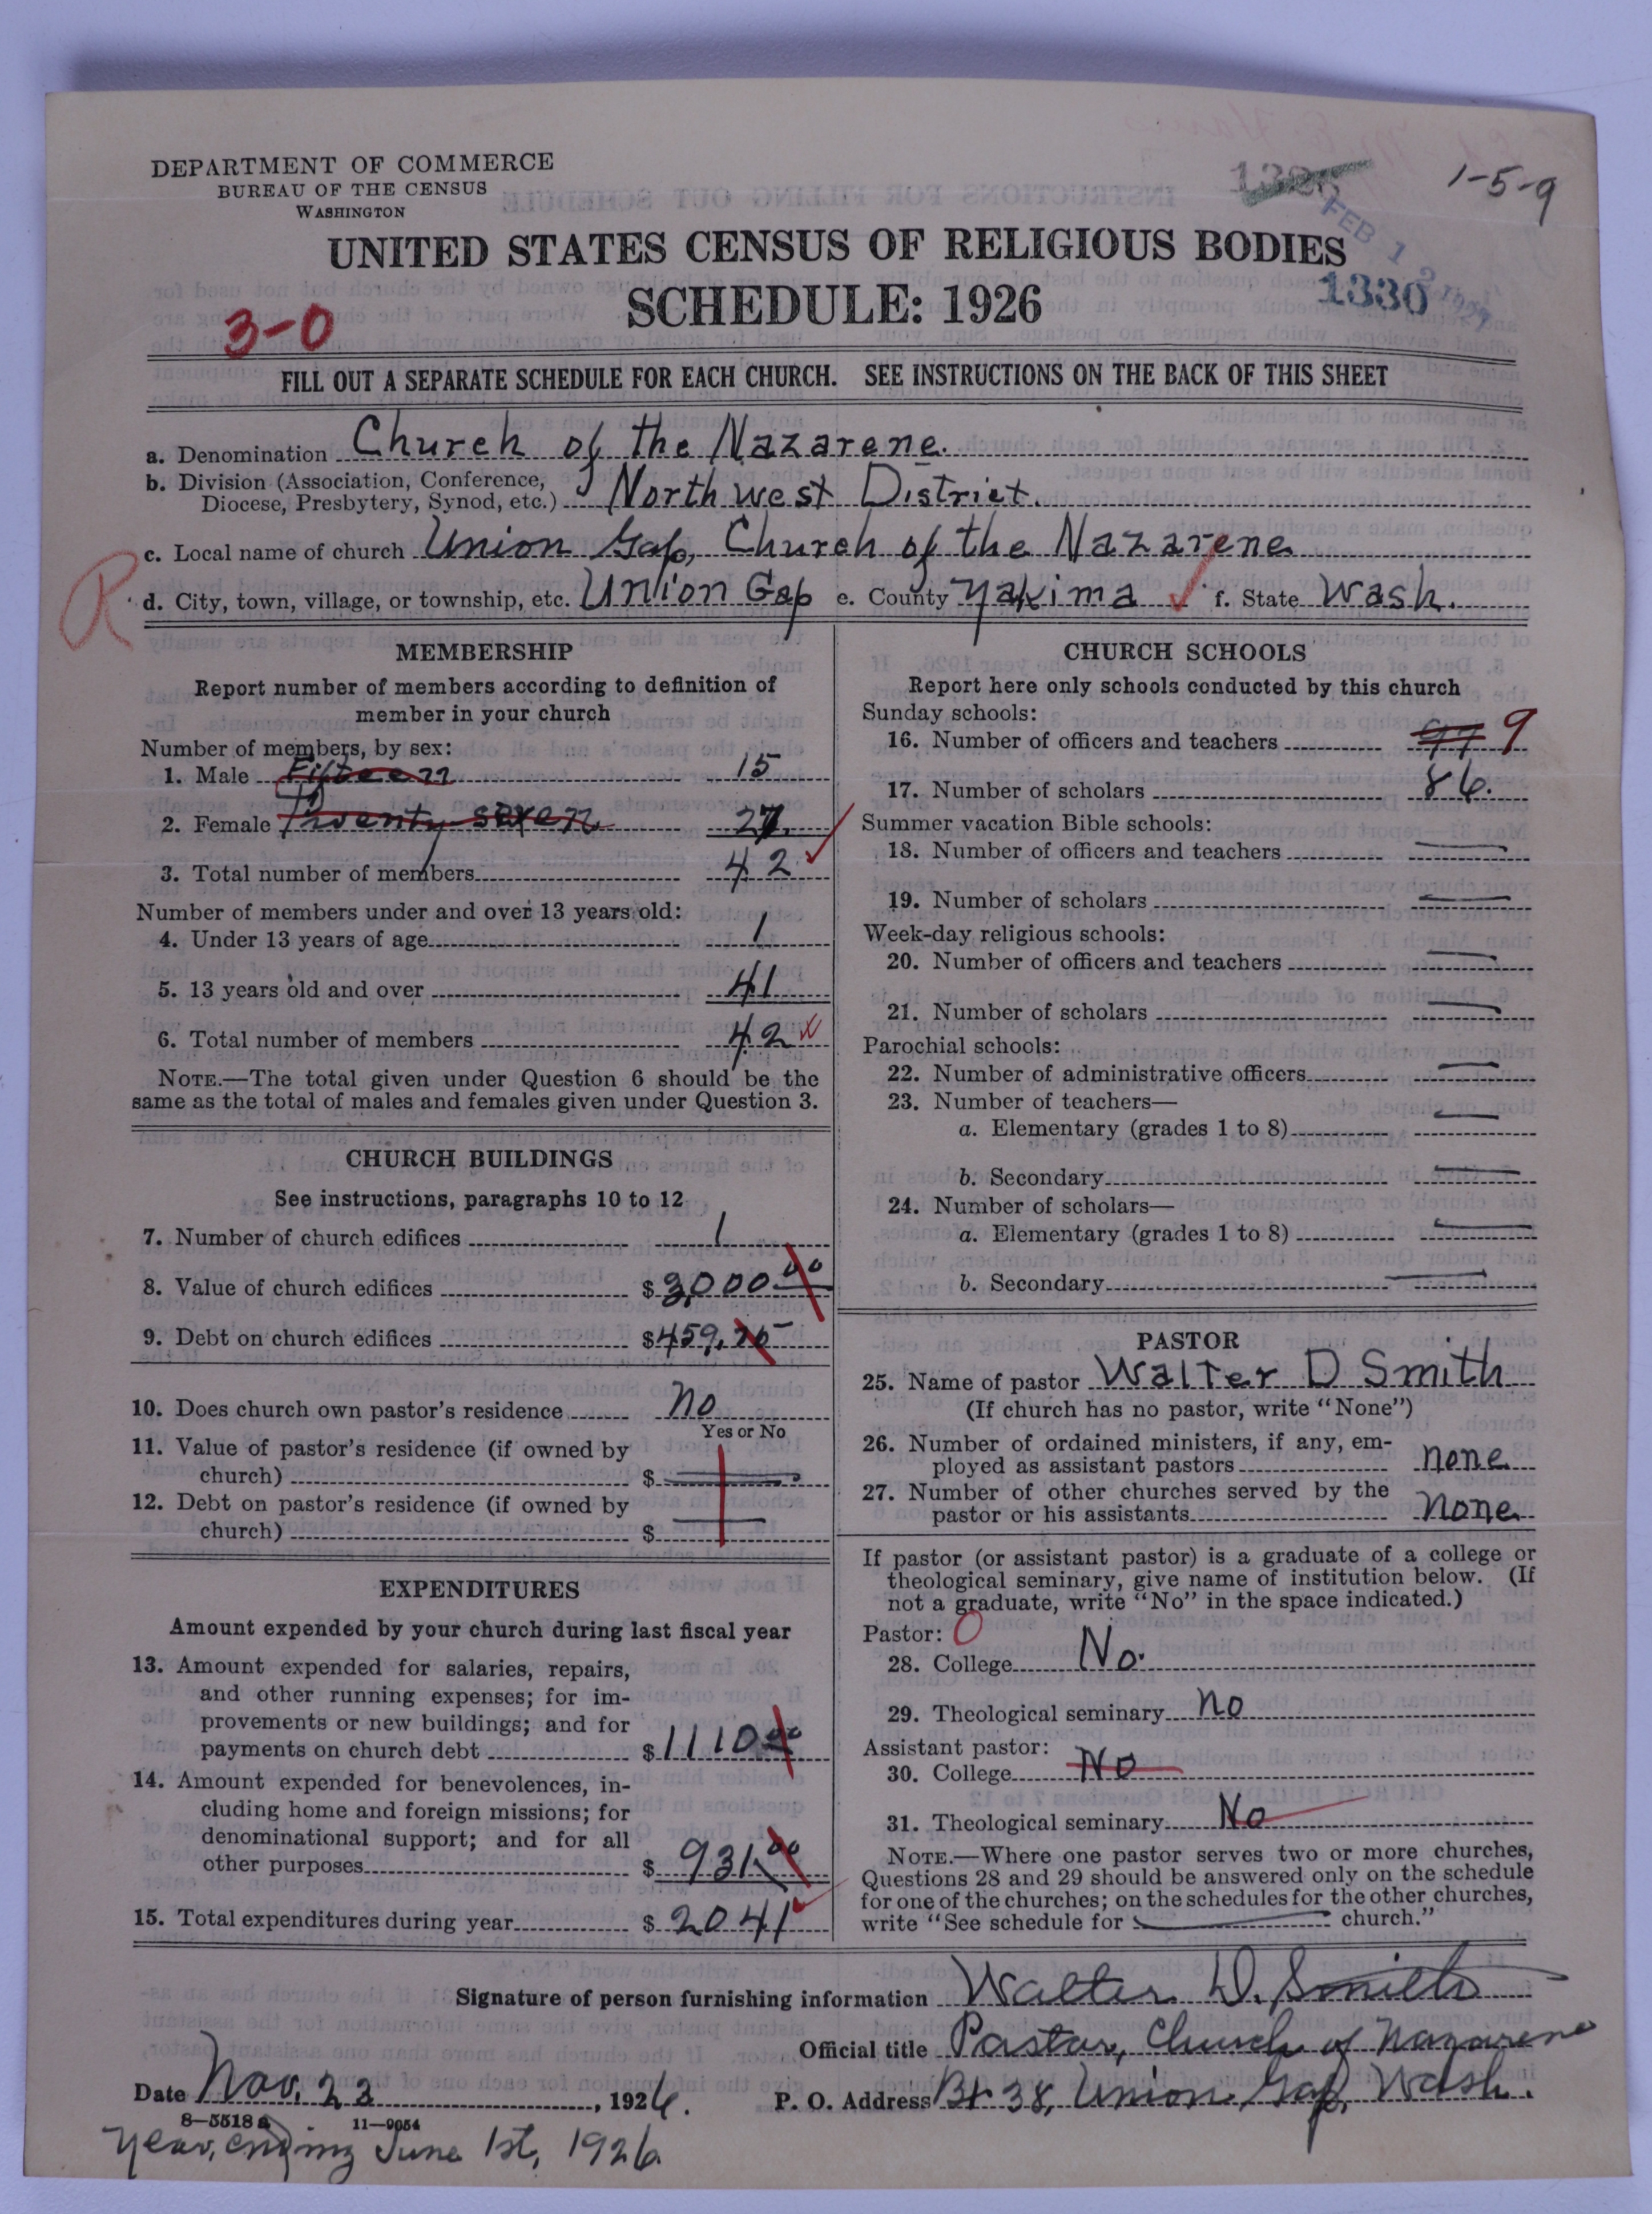 DEPARTMENT OF COMMERCE
BUREAU OF THE CENSUS
WASHINGTON
1-5-9
UNITED STATES CENSUS OF RELIGIOUS BODIES
SCHEDULE: 1926
1330
3-0
FILL OUT A SEPARATE SCHEDULE FOR EACH CHURCH. SEE INSTRUCTIONS ON THE BACK OF THIS SHEET
a. Denomination Church of the Nazarene.
b. Division (Association, Conference,
Diocese, Presbytery, Synod, etc.) North west District.
c. Local name of church Union Gap, Church of the Nazarene
R
d. City, town, village, or township, etc. Union Gap e. County Yakima f. State Wash.
MEMBERSHIP
Report number of members according to definition of
member in your church
Number of members, by sex:
1. Male Fifteen 15
2. Female Twenty seven 27
3. Total number of members 42
Number of members under and over 13 years old:
4. Under 13 years of age 1
5. 13 years old and over 41
6. Total number of members 42
NOTE.—The total given under Question 6 should be the
same as the total of males and females given under Question 3.
CHURCH BUILDINGS
See instructions, paragraphs 10 to 12
7. Number of church edifices 1
8. Value of church edifices $3,000 00
9. Debt on church edifices $459.75
10. Does church own pastor's residence No
Yes or No
11. Value of pastor's residence (if owned by
church) $
12. Debt on pastor's residence (if owned by
church) $
EXPENDITURES
Amount expended by your church during last fiscal year
13. Amount expended for salaries, repairs,
and other running expenses; for im-
provements or new buildings; and for
payments on church debt $1110 00
14. Amount expended for benevolences, in-
cluding home and foreign missions; for
denominational support; and for all
other purposes $931.00
15. Total expenditures during year $2041
CHURCH SCHOOLS
Report here only schools conducted by this church
Sunday schools:
16. Number of officers and teachers 9
17. Number of scholars 86.
Summer vacation Bible schools:
18. Number of officers and teachers
19. Number of scholars
Week-day religious schools:
20. Number of officers and teachers
21. Number of scholars
Parochial schools:
22. Number of administrative officers
23. Number of teachers—
a. Elementary (grades 1 to 8)
b. Secondary
24. Number of scholars—
a. Elementary (grades 1 to 8)
b. Secondary
PASTOR
25. Name of pastor Walter D Smith
(If church has no pastor, write "None")
26. Number of ordained ministers, if any, em-
ployed as assistant pastors none
27. Number of other churches served by the
pastor or his assistants None
If pastor (or assistant pastor) is a graduate of a college or
theological seminary, give name of institution below. (If
not a graduate, write "No" in the space indicated.)
Pastor: 0
28. College No.
29. Theological seminary No
Assistant pastor:
30. College No
31. Theological seminary No
NOTE.—Where one pastor serves two or more churches,
Questions 28 and 29 should be answered only on the schedule
for one of the churches; on the schedules for the other churches,
write "See schedule for church."
Signature of person furnishing information Walter D. Smith
Official title Pastor, Church of Nazarene
Date Nov. 23, 1926. P. O. Address Bx 38, Union Gap, Wash.
8—5518 a 11—9054
Year, ending June 1st, 1926